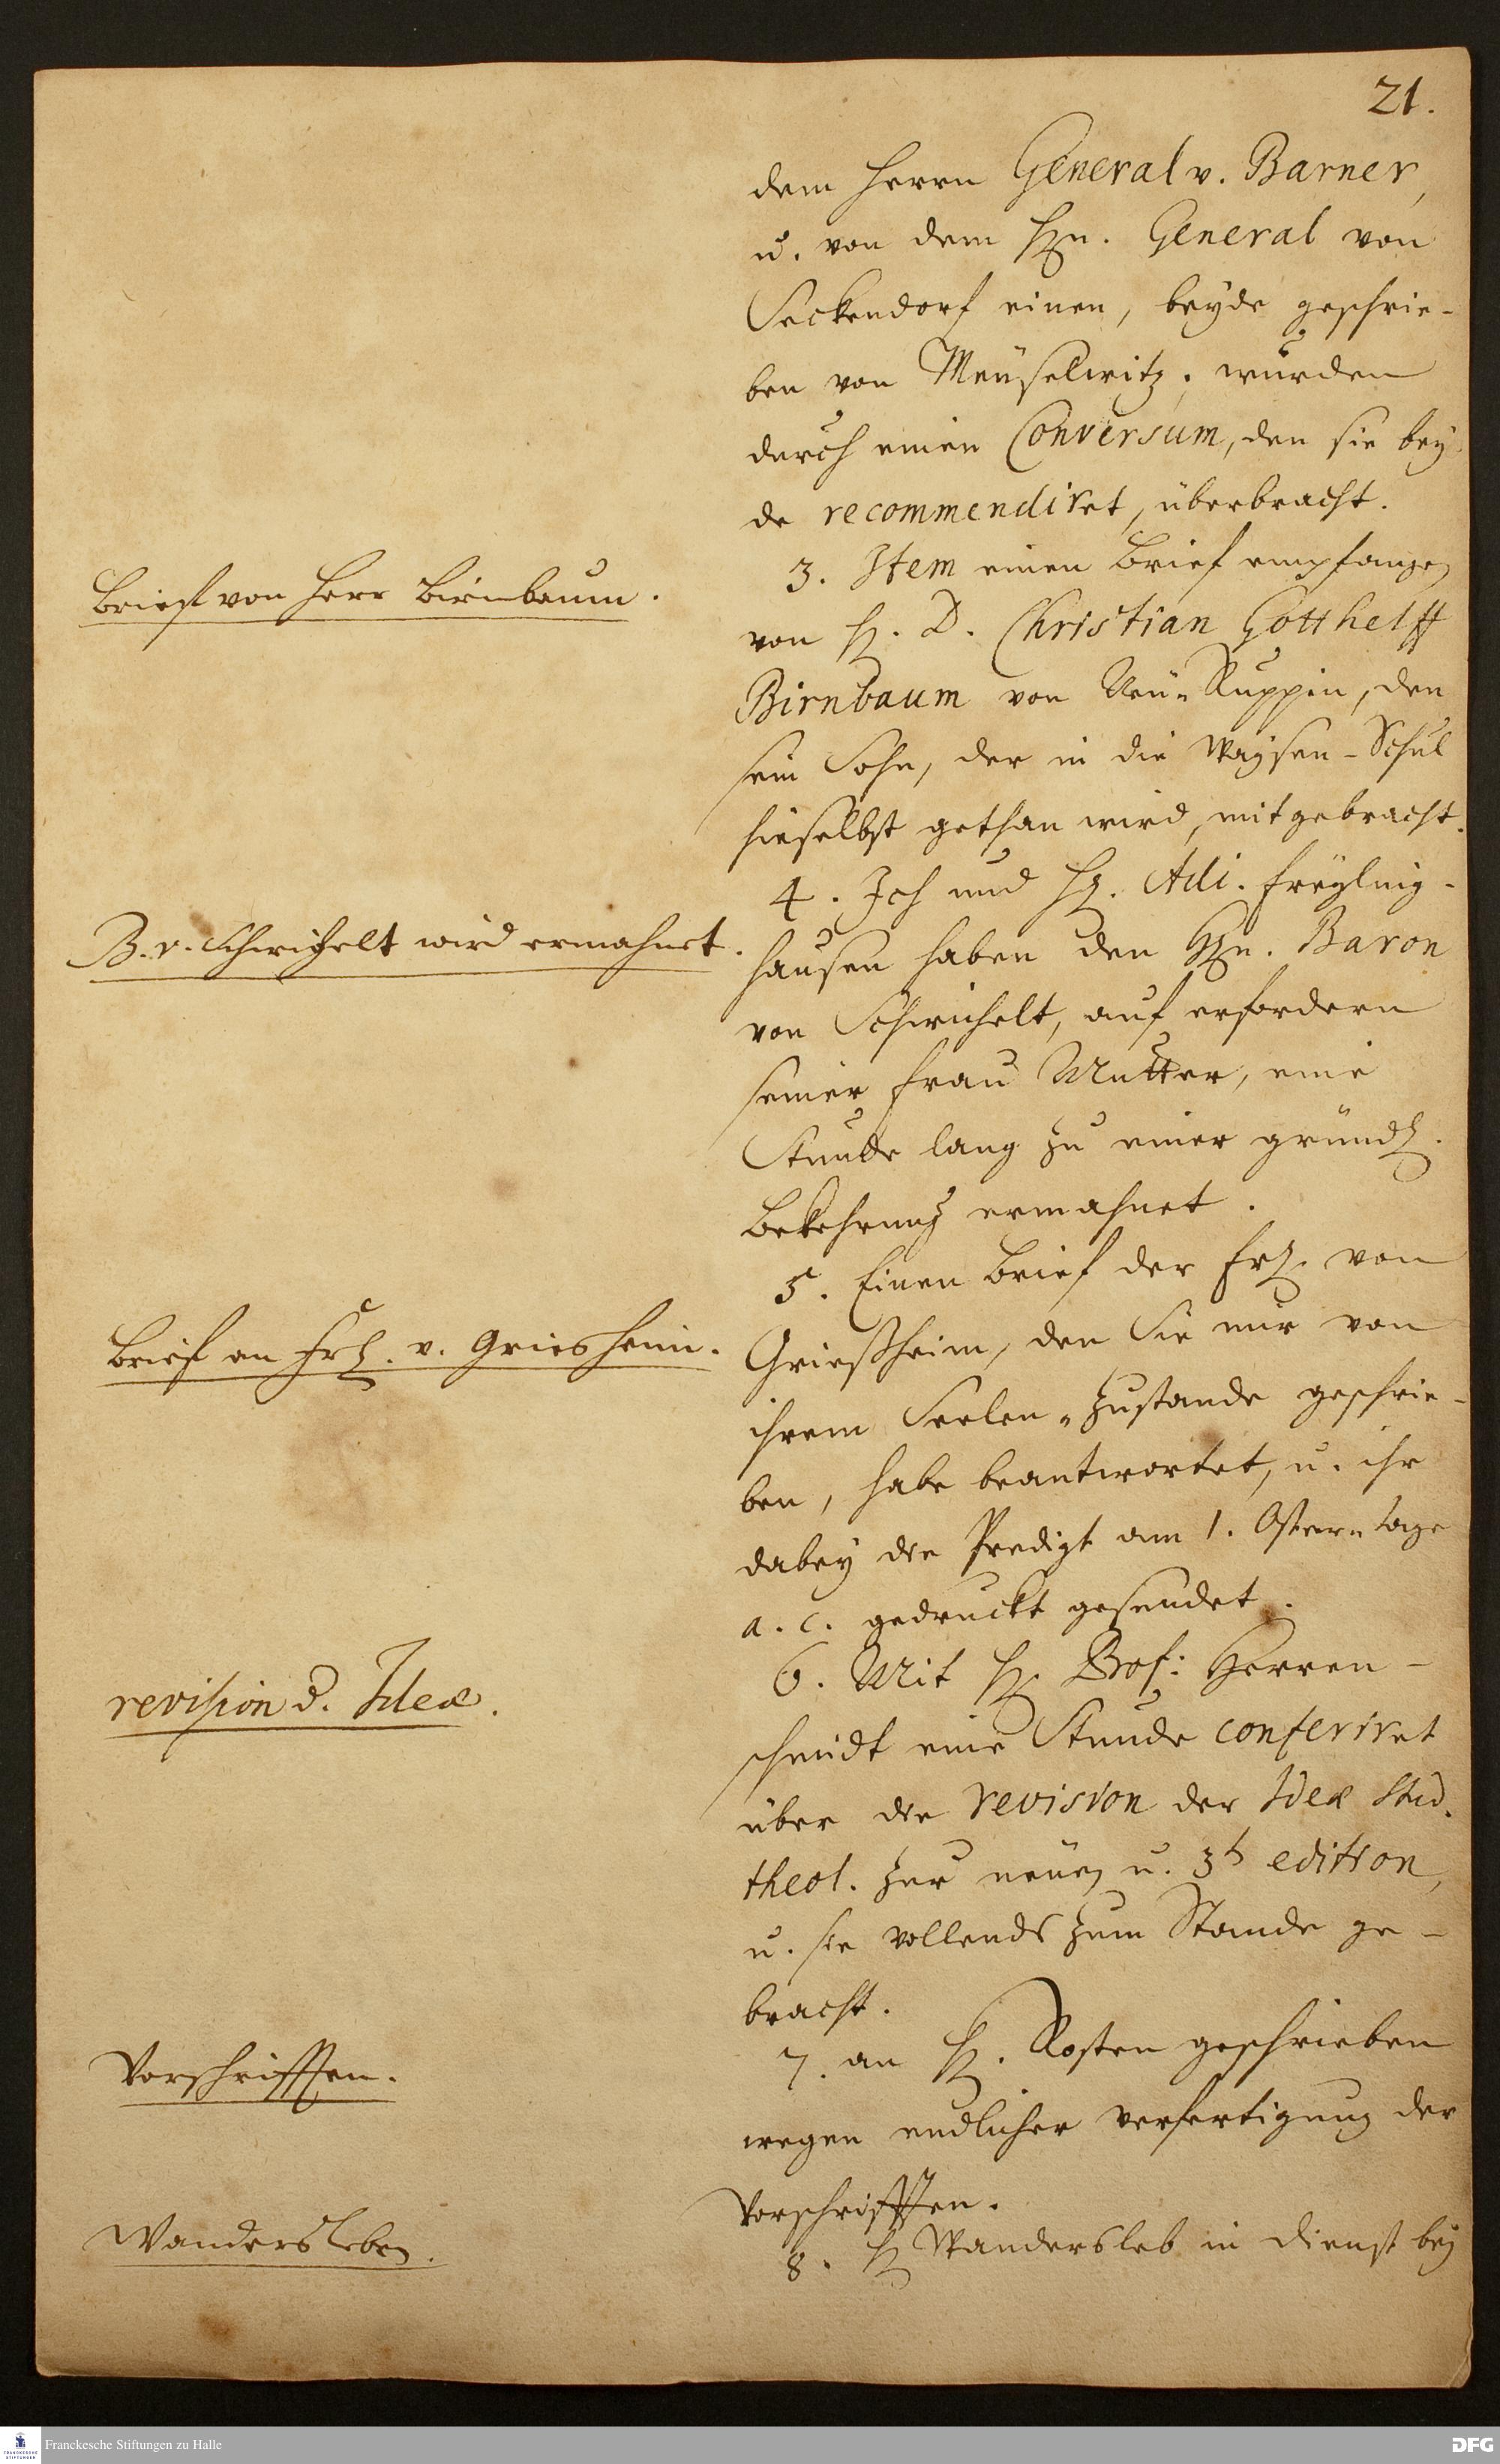 21.
dem Herrn General v. Barner,
u. von dem Hrn. General von
Seckendorf einen, beyde geschrie-
ben von Meuselwitz, wurden
durch einen Conversum, den sie bey-
de recommendiret, überbracht.
Brief von Herr Birnbaum.
3. Item einen Brief empfangen
von H. D. Christian Gotthelff
Birnbaum von Neu-Ruppin, den
sein Sohn, der in die Waysen-Schul
hieselbst gethan wird, mitgebracht.
4. Ich und Hr. Adj. Freyling-
B. v. Schwichelt wird ermahnet.
hausen haben den Hrn. Baron
von Schwichelt, auf erfordern
seiner Frau Mutter, eine
Stunde lang zu einer gründl.
Bekehrung ermahnet.
5. Einen Brief der Frl. von
Brief an Frl. v. Griesheim.
Grießheim, den Sie mir von
ihrem Seelen-Zustande geschrie-
ben, habe beantwortet, u. ihr
dabey die Predigt am 1. Oster-tage
a. c. gedruckt gesendet.
6. Mit H. Prof: Herren-
revision d. Ideæ.
schmidt eine Stunde conferiret
über die revision der Ideæ Stud.
theol. zur neuen u. 3t edition,
u. sie vollends zum Stande ge-
bracht.
7. an H. Rosten geschrieben
Vorschrifften.
wegen endlicher verfertigung der
Vorschrifften.
Wandersleben.
8. H Wandersleb in Dienst bey
Franckesche Stiftungen zu Halle
DFG